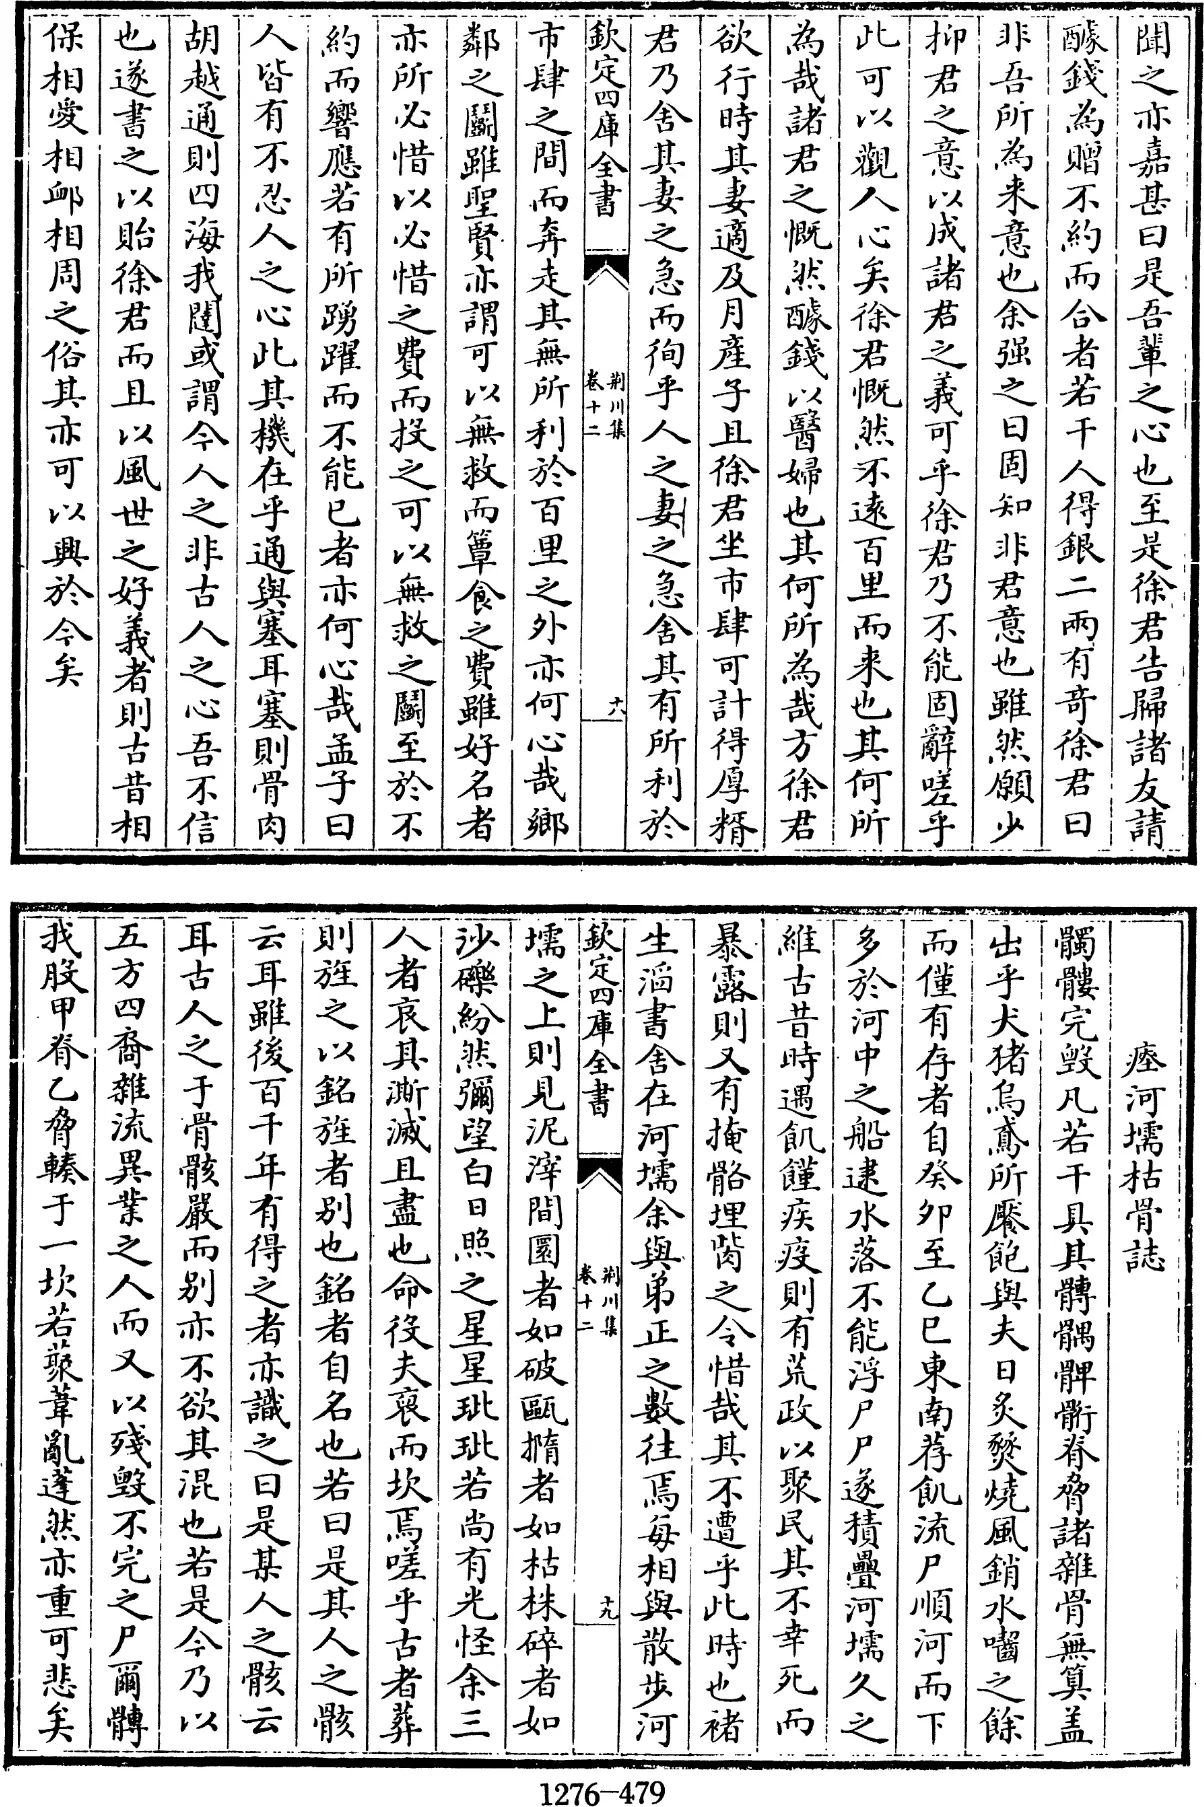 聞之亦嘉甚曰是吾輩之心也至是徐君告歸諸友請
醵錢為贈不約而合者若干人得銀二兩有奇徐君曰
非吾所為来意也余强之曰固知非君意也雖然願少
抑君之意以成諸君之義可乎徐君乃不能固辭嗟乎
此可以觀人心矣徐君慨然不遠百里而来也其何所
為哉諸君之慨然醵錢以醫婦也其何所為哉方徐君
欲行時其妻適及月産子且徐君坐市肆可計得厚糈
君乃舍其妻之急而徇乎人之妻之急舍其有所利於
欽定四庫全書
荆川集
卷十二
十八
市肆之間而奔走其無所利於百里之外亦何心哉鄉
鄰之鬭雖聖賢亦謂可以無救而簞食之費雖好名者
亦所必惜以必惜之費而投之可以無救之鬭至於不
約而響應若有所踴躍而不能已者亦何心哉孟子曰
人皆有不忍人之心此其機在乎通與塞耳塞則骨肉
胡越通則四海我闥或謂今人之非古人之心吾不信
也遂書之以貽徐君而且以風世之好義者則古昔相
保相愛相卹相周之俗其亦可以興於今矣
瘞河壖枯骨誌
髑髏完毁凡若干具其髆髃髀䯒脊脅諸雜骨無算蓋
出乎犬猪烏鳶所饜飽與夫日炙燹燒風銷水囓之餘
而僅有存者自癸卯至乙巳東南荐飢流尸順河而下
多於河中之船逮水落不能浮尸尸遂積疊河壖久之
維古昔時遇飢饉疾疫則有荒政以聚民其不幸死而
暴露則又有掩骼埋胔之令惜哉其不遭乎此時也禇
生滔書舍在河壖余與弟正之數往焉每相與散步河
欽定四庫全書
荆川集
卷十二
十九
壖之上則見泥滓間圜者如破甌撱者如枯株碎者如
沙礫紛然彌望白日照之星星玼玼若尚有光怪余三
人者哀其澌滅且盡也命役夫裒而坎焉嗟乎古者葬
則旌之以銘旌者别也銘者自名也若曰是其人之骸
云耳雖後百千年有得之者亦識之曰是某人之骸云
耳古人之于骨骸嚴而别亦不欲其混也若是今乃以
五方四裔雜流異業之人而又以殘毁不完之尸爾髆
我股甲脊乙脅輳于一坎若蕞葦亂蓬然亦重可悲矣
1276-479